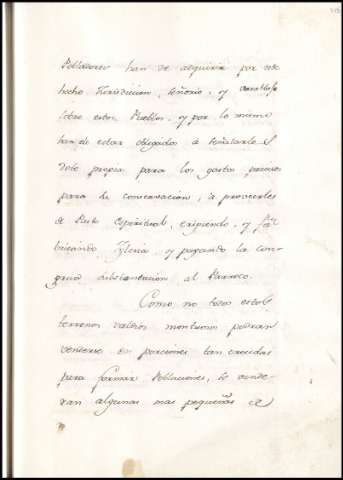 Pobladores han de adquirir por este
hecho Jurisdiccion, Señorio, y Vasallaje
sobre estos Pueblos, y por lo mismo
han de estar obligados á señalarle el
dote propia para los gastos precisos
para su conservacion, á proveerles
de Pasto espiritual, erigiendo, y fa
bricando Iglesia, y pagando la con-
grua substentacion al Parroco.
Como no todos estos
terrenos valdios montuosos podran
venderse en porciones tan crecidas
para formar Poblaciones, se vende
ran algunas mas pequeñas á